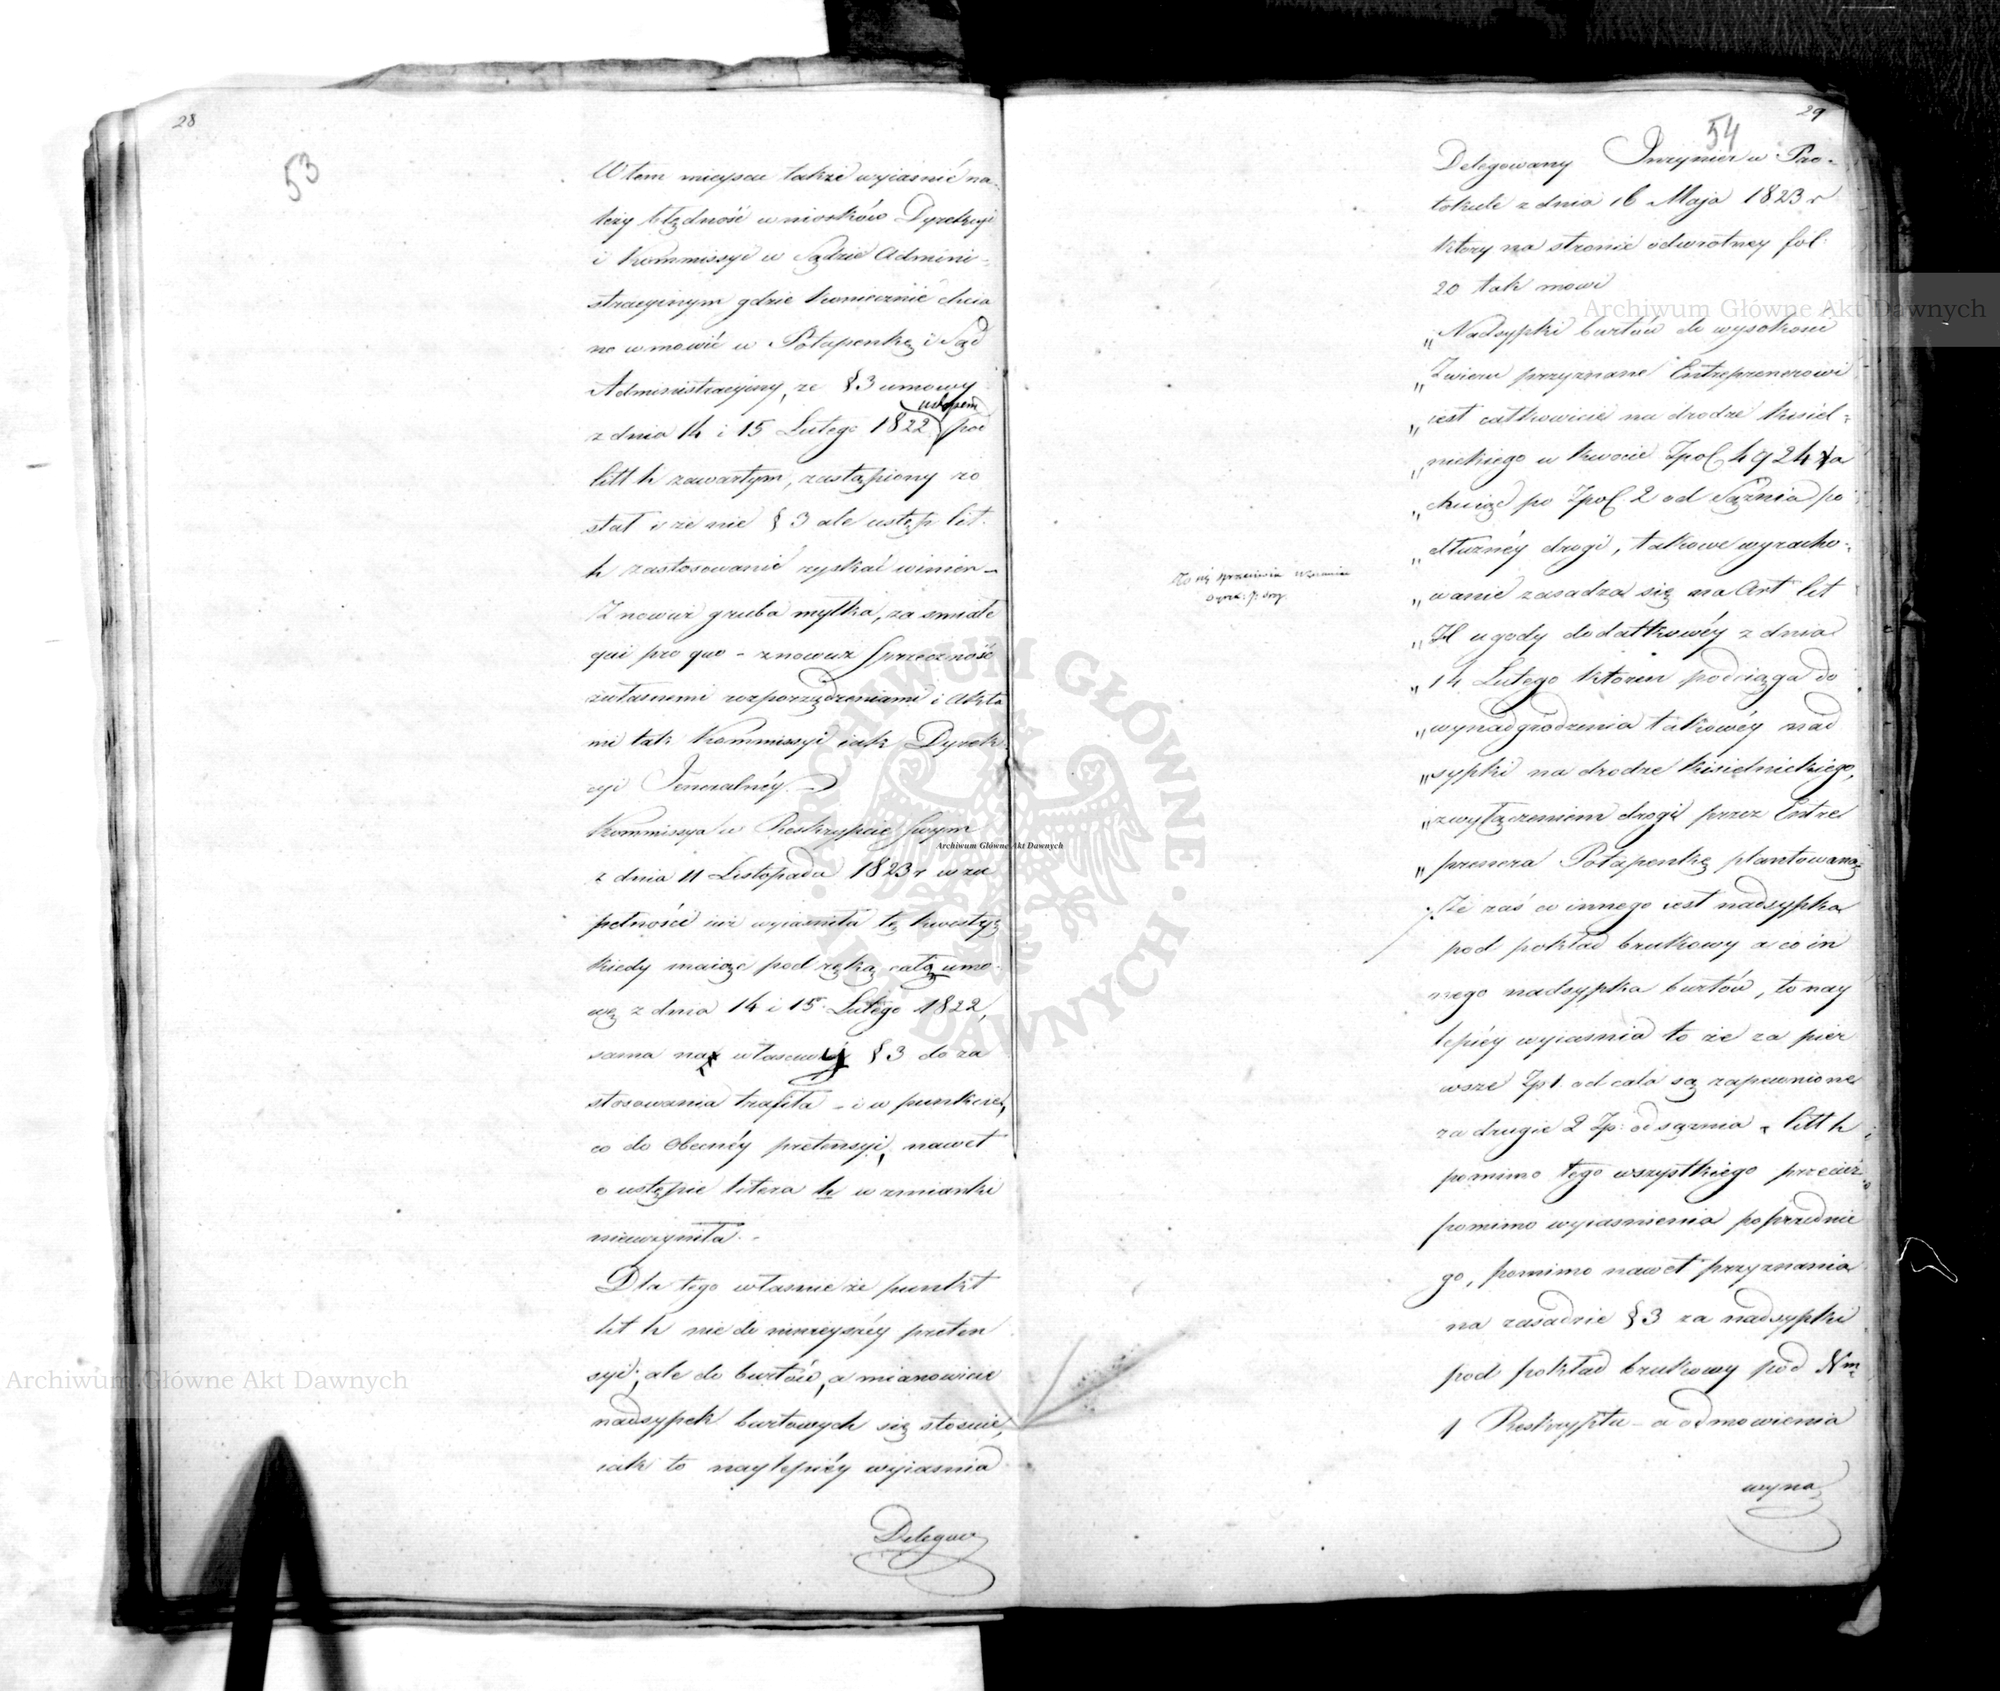 28
53
W tem mieyscu także wyiasnić na-
leży błędność wniosków Dyrekcyi
i Kommissyi w Sądzie Admini-
stracyinym gdzie koniecznie chcia
no wmowić w Potapenkę i Sąd
Administracyiny, ze § 3 umowy
ustępem
z dnia 14 i 15 Lutego 1822 pod
litt h zawartym, zastąpiony zo
stał i że nie § 3 ale ustęp lit.
h zastosowanie zyskać winien -
Znowuż gruba myłka, za smiałe
qui pro quo - znowuż sprzeczność
z własnemi rozporządzeniami i Akta
mi tak Kommissyi iak Dyrek
cyi Jeneralnéy. -
Kommissya w Reskrypcie swym
z dnia 11 Listopada 1823 r w zu
pełności iuż wyiasniła tę kwestyą
kiedy maiąc pod ręką całą umo-
wę z dnia 14 i 15 Lutego 1822,
sama na własciwy § 3 do za
stosowania trafiła - i w punkcie,
co do Obecnéy pretensyi, nawet
o ustępie litera h wzmianki
nieuczyniła. -
Dla tego własnie że punkt
lit h nie do ninieyszéy preten
syi, ale do burtów, a mianowicie
nadsypek burtowych się stosuie,
iak to naylepiéy wyiasnia
Delegow
29
54
Delegowany Inzynier w Pro-
tokule z dnia 16 Maja 1823 r
ktory na stronie odwrotney fol:
20 tak mowi
„Nadsypki burtów do wysokosci
„Zwieru przyznane Entreprenerowi
„iest całkowicie na drodze Kisiel-
„nickiego w kwocie Zpol 4924 Ra
„chuiąc po Zpol 2 od Sążnia po
„dłużnéy drogi, takowe wyracho-
„wanie zasadza się na Art lit
„H ugody dodatkowéy z dnia
„14 Lutego ktoren podciąga do
„wynadgrodzenia takowéy nad
„sypki na drodze Kisielnickiego,
„z wyłączeniem drogi przez Entre
„prenera Potapenkę plantowaną
Że zaś co innego iest nadsypka
pod pokład brukowy a co in
nego nadsypka burtów, to nay
lepiéy wyiasnia to że za pier
wsze Zp 1 od cala są zapewnione
za drugie 2 Zp: od sążnia litt h
pomimo tego wszystkiego przecież
pomimo wyiasnienia poprzednie
go, pomimo nawet przyznania
na zasadzie § 3 za nadsypki
pod pokład brukowy pod Nm
1 Reskryptu - a odmowienia
wyna
Archiwum Główne Akt Dawnych
Archiwum Główne Akt Dawnych
Archiwum Główne Akt Dawnych
ARCHIWUM GŁÓWNE
AKT DAWNYCH